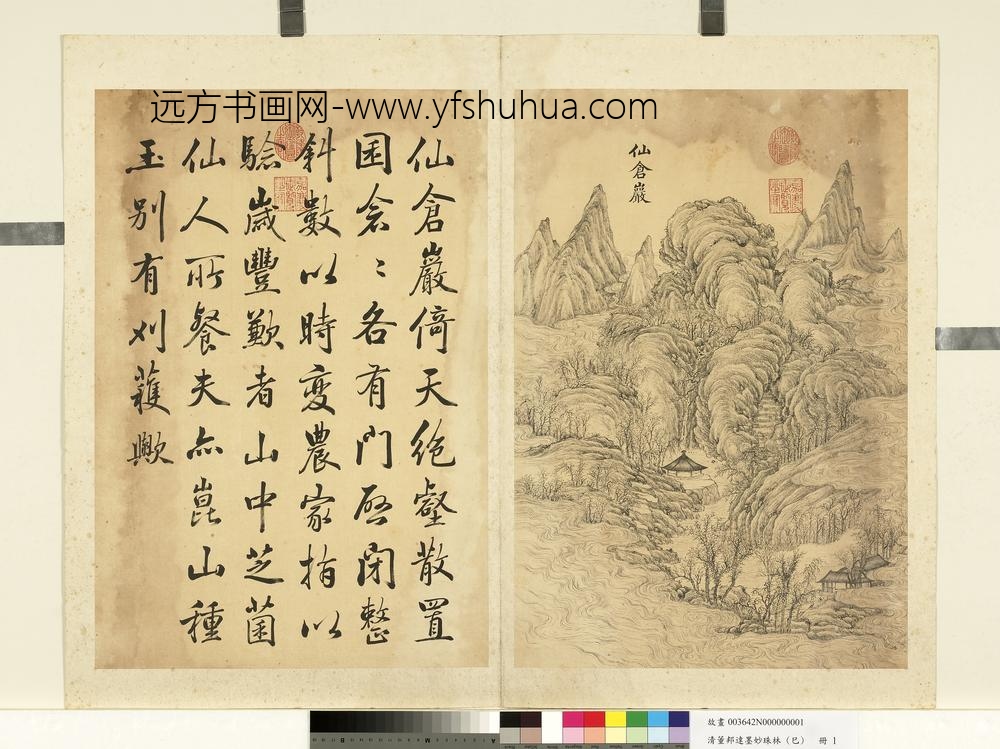 远方书画网-www.yfshuhua.com
仙倉巖
仙倉巖倚天絶壑散置
囷倉〻各有門啓閉整
斜數以時變農家指以
驗歲豐歉者山中芝菌
仙人所餐夫亦崑山種
玉别有刈蘐歟
故畫 003642N000000001
清董邦達墨妙珠林(巳) 冊 1